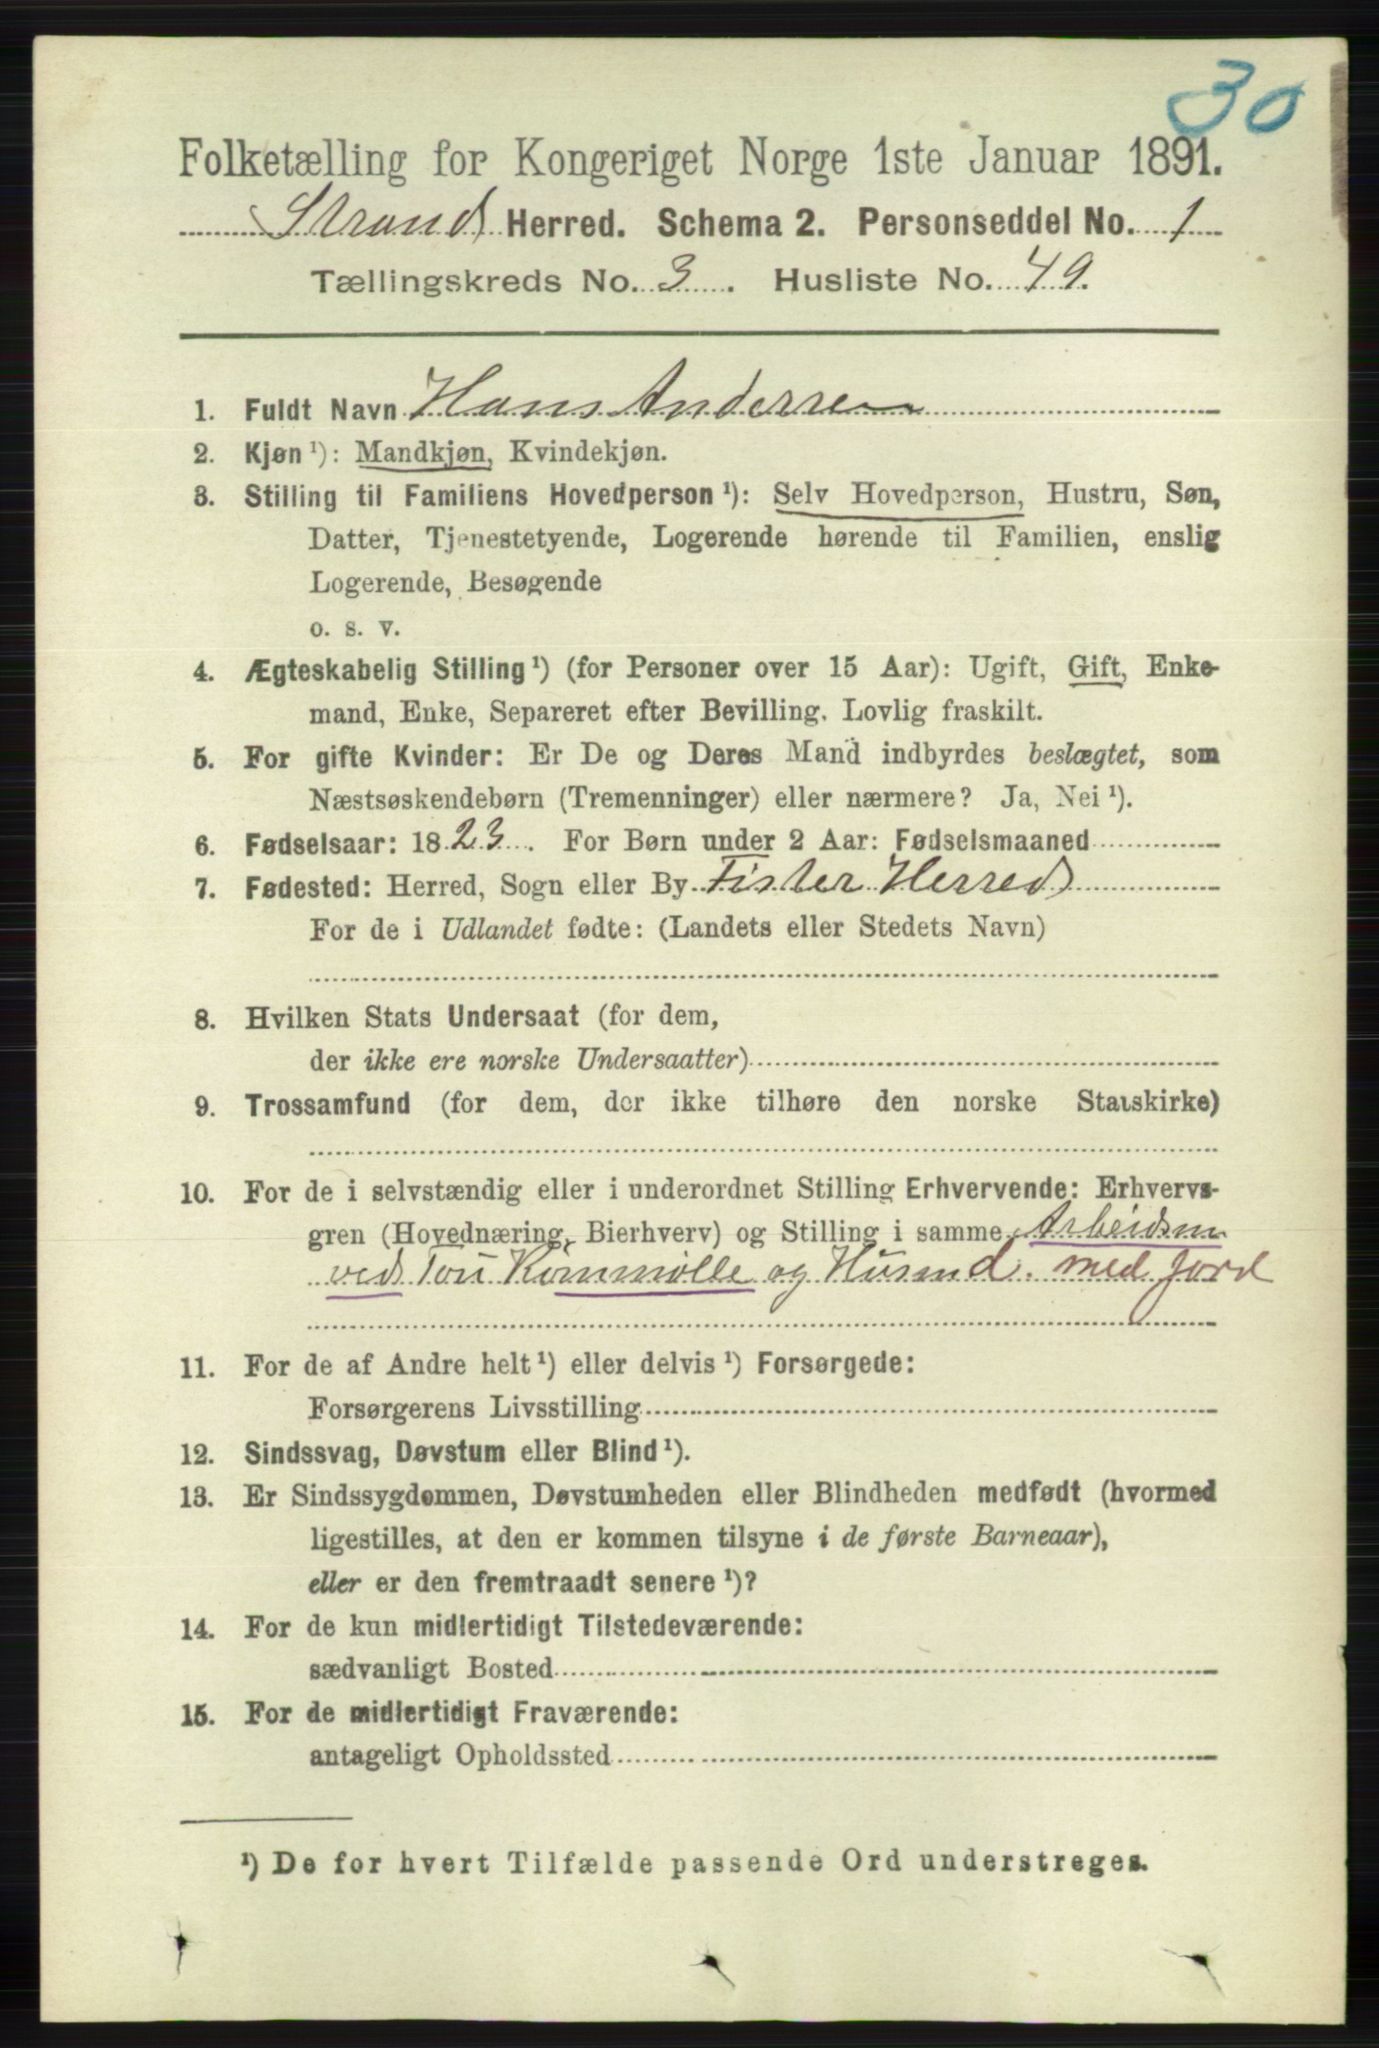 30
Folketælling for Kongeriget Norge 1ste Januar 1891.
Strand Herred. Schema 2. Personseddel No. 1
Tællingskreds No. 3. Husliste No. 49.
1. Fuldt Navn Hans Andersen
2. Kjøn ¹): Mandkjøn, Kvindekjøn.
3. Stilling til Familiens Hovedperson ¹): Selv Hovedperson, Hustru, Søn,
Datter, Tjenestetyende, Logerende hørende til Familien, enslig
Logerende, Besøgende
o. s. v.
4. Ægteskabelig Stilling ¹) (for Personer over 15 Aar): Ugift, Gift, Enke-
mand, Enke, Separeret efter Bevilling. Lovlig fraskilt.
5. For gifte Kvinder: Er De og Deres Mand indbyrdes beslægtet, som
Næstsøskendebørn (Tremenninger) eller nærmere? Ja, Nei ¹).
6. Fødselsaar: 1823. For Børn under 2 Aar: Fødselsmaaned
7. Fødested: Herred, Sogn eller By Fister Herred
For de i Udlandet fødte: (Landets eller Stedets Navn)
8. Hvilken Stats Undersaat (for dem,
der ikke ere norske Undersaatter)
9. Trossamfund (for dem, der ikke tilhøre den norske Statskirke)
10. For de i selvstændig eller i underordnet Stilling Erhvervende: Erhvervs-
gren (Hovednæring, Bierhverv) og Stilling i samme Arbeidsm
ved Tou Kornmølle og Husmd. med jord
11. For de af Andre helt ¹) eller delvis ¹) Forsørgede:
Forsørgerens Livsstilling
12. Sindssvag, Døvstum eller Blind ¹).
13. Er Sindssygdommen, Døvstumheden eller Blindheden medfødt (hvormed
ligestilles, at den er kommen tilsyne i de første Barneaar),
eller er den fremtraadt senere ¹)?
14. For de kun midlertidigt Tilstedeværende:
sædvanligt Bosted
15. For de midlertidigt Fraværende:
antageligt Opholdssted
¹) De for hvert Tilfælde passende Ord understreges.